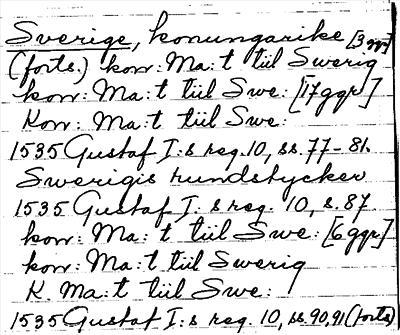 Sverige, konungarike [3 gr]
(forts.) kon: Ma:t tiil Swerig
kon: Ma:t tiil Swe: [17 ggr]
Kon: Ma:t tiil Swe:
1535 Gustaf I:s reg. 10, ss. 77-81.
Swerigis rundstycker
1535 Gustaf I:s reg. 10, s. 87.
kon: Ma:t tiil Swe: [6 ggr]
kon: Ma:t tiil Swerig
K. Ma:t tiil Swe:
1535 Gustaf I:s reg. 10, ss. 90, 91 (forts)